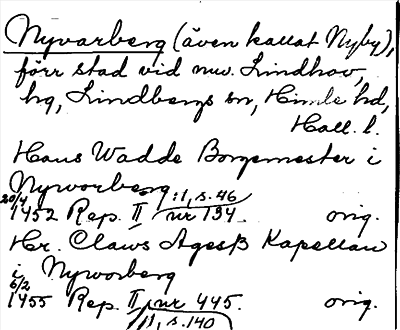 Nyvarberg (även kallat Nyby),
förr stad vid nuv. Lindhov,
hg, Lindbergs sn, Himle hd,
Hall. l.
Hans Wadde Borgemester i
Nyworberg
20/4 1452 Rep. II :1, s. 46 nr 134. orig.
Hr. Claws Agesß Kapellan
i Nyworberg
6/2 1455 Rep. II nr 445. orig.
:1, s. 140